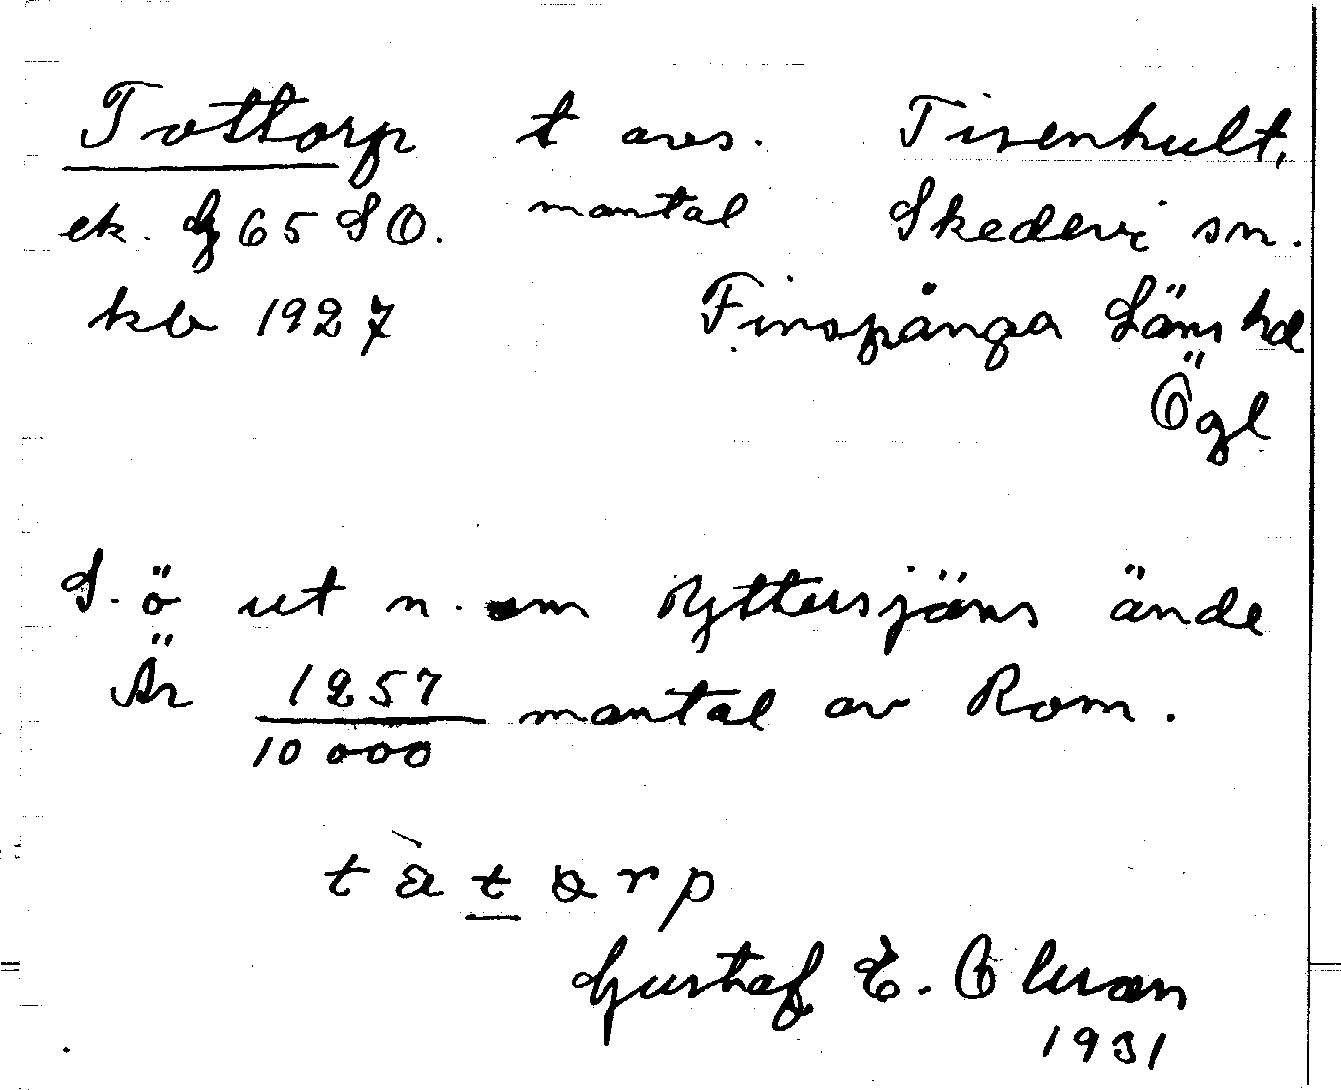 Tottorp t avs. Tisenhult,
ek. G 65 SO. mantal Skedevi sn.
kb 1927 Finspånga Läns hd
Ögl
S. ö ut n. om Ryttersjäns ände
Är 1257/10 000 mantal av Rom.
tàtarp
Gustaf E. Olman
1931